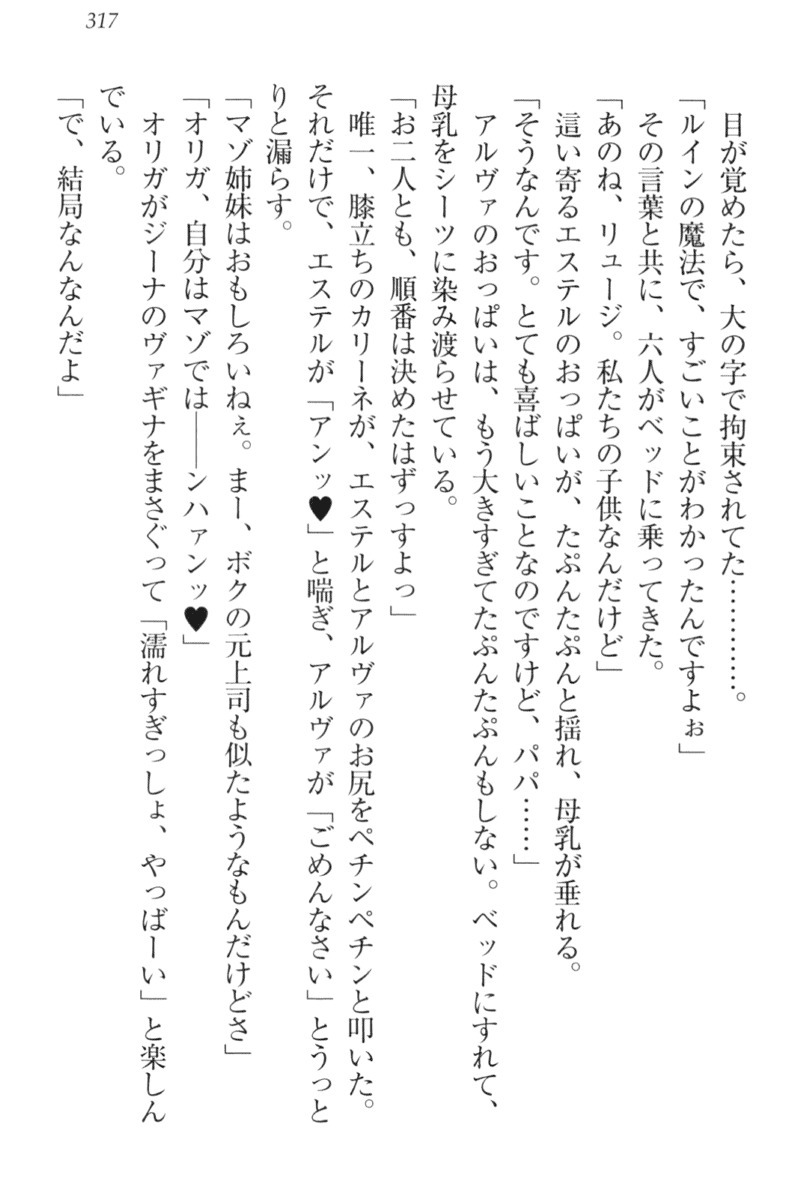 317
目が覚めたら、大の字で拘束されてた…………。
「ルインの魔法で、すごいことがわかったんですよぉ」
その言葉と共に、六人がベッドに乗ってきた。
「あのね、リュージ。私たちの子供なんだけど」
這い寄るエステルのおっぱいが、たぷんたぷんと揺れ、母乳が垂れる。
「そうなんです。とても喜ばしいことなのですけど、パパ……」
アルヴァのおっぱいは、もう大きすぎてたぷんたぷんもしない。ベッドにすれて、
母乳をシーツに染み渡らせている。
「お二人とも、順番は決めたはずっすよっ」
唯一、膝立ちのカリーネが、エステルとアルヴァのお尻をペチンペチンと叩いた。
それだけで、エステルが「アンッ♥」と喘ぎ、アルヴァが「ごめんなさい」とうっと
りと漏らす。
「マゾ姉妹はおもしろいねぇ。まー、ボクの元上司も似たようなもんだけどさ」
「オリガ、自分はマゾでは――ンハァンッ♥」
オリガがジーナのヴァギナをまさぐって「濡れすぎっしょ、やっばーい」と楽しん
でいる。
「で、結局なんなんだよ」